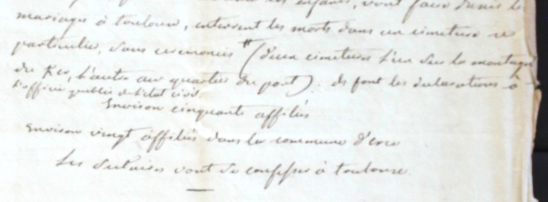 les enfants, vont faire bénir les
mariages à toulouse, enterrent les morts dans un cimetière
particulier, sans cérémonies # (deux cimetières l'un sur la montagne
du Rec, l'autre au quartier du pont). ils font les déclarations à
l'officier public de l'état civil.
Environ cinquante affiliés
Environ vingt affiliés dans la commune d'
Les vont se confesser à toulouse